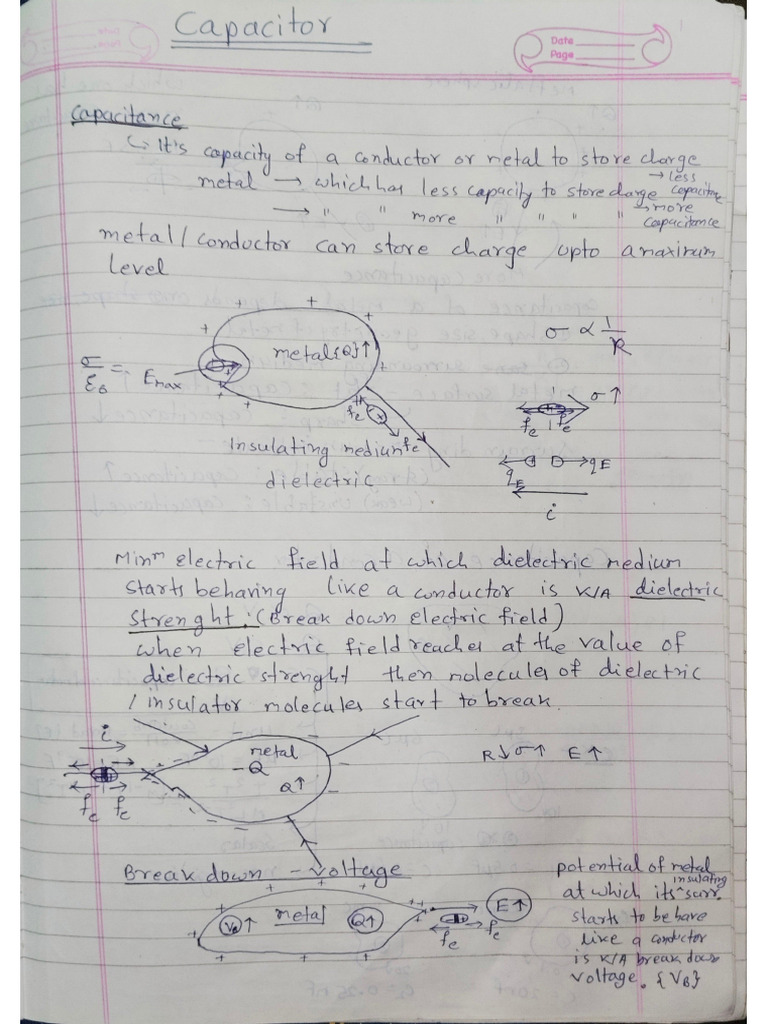 Capacitor
Date
Page
Capacitance
It's capacity of a conductor or metal to store charge
metal → which has less capacity to store charge → less capacitance
→ " " more " " " " → more capacitance
metal/conductor can store charge upto a maximum
level
+ + + + + + +
metal{Q}↑
σ ∝ 1/R
σ/ε₀ = Emax
σ↑
fe fe
fe fe
Insulating medium
dielectric
qE qE
i
Minm electric field at which dielectric medium
starts behaving like a conductor is K/A dielectric
strenght: (Break down electric field)
when electric field reaches at the value of
dielectric strenght then molecules of dielectric
/ insulator molecules start to break.
i
metal
-Q
Q↑
R↓ σ↑ E↑
fe fe
Break down - voltage
potential of metal
at which its insulating surr.
starts to behave
like a conductor
is K/A break down
voltage. {VB}
VB↑ metal Q↑
E↑
fe fe